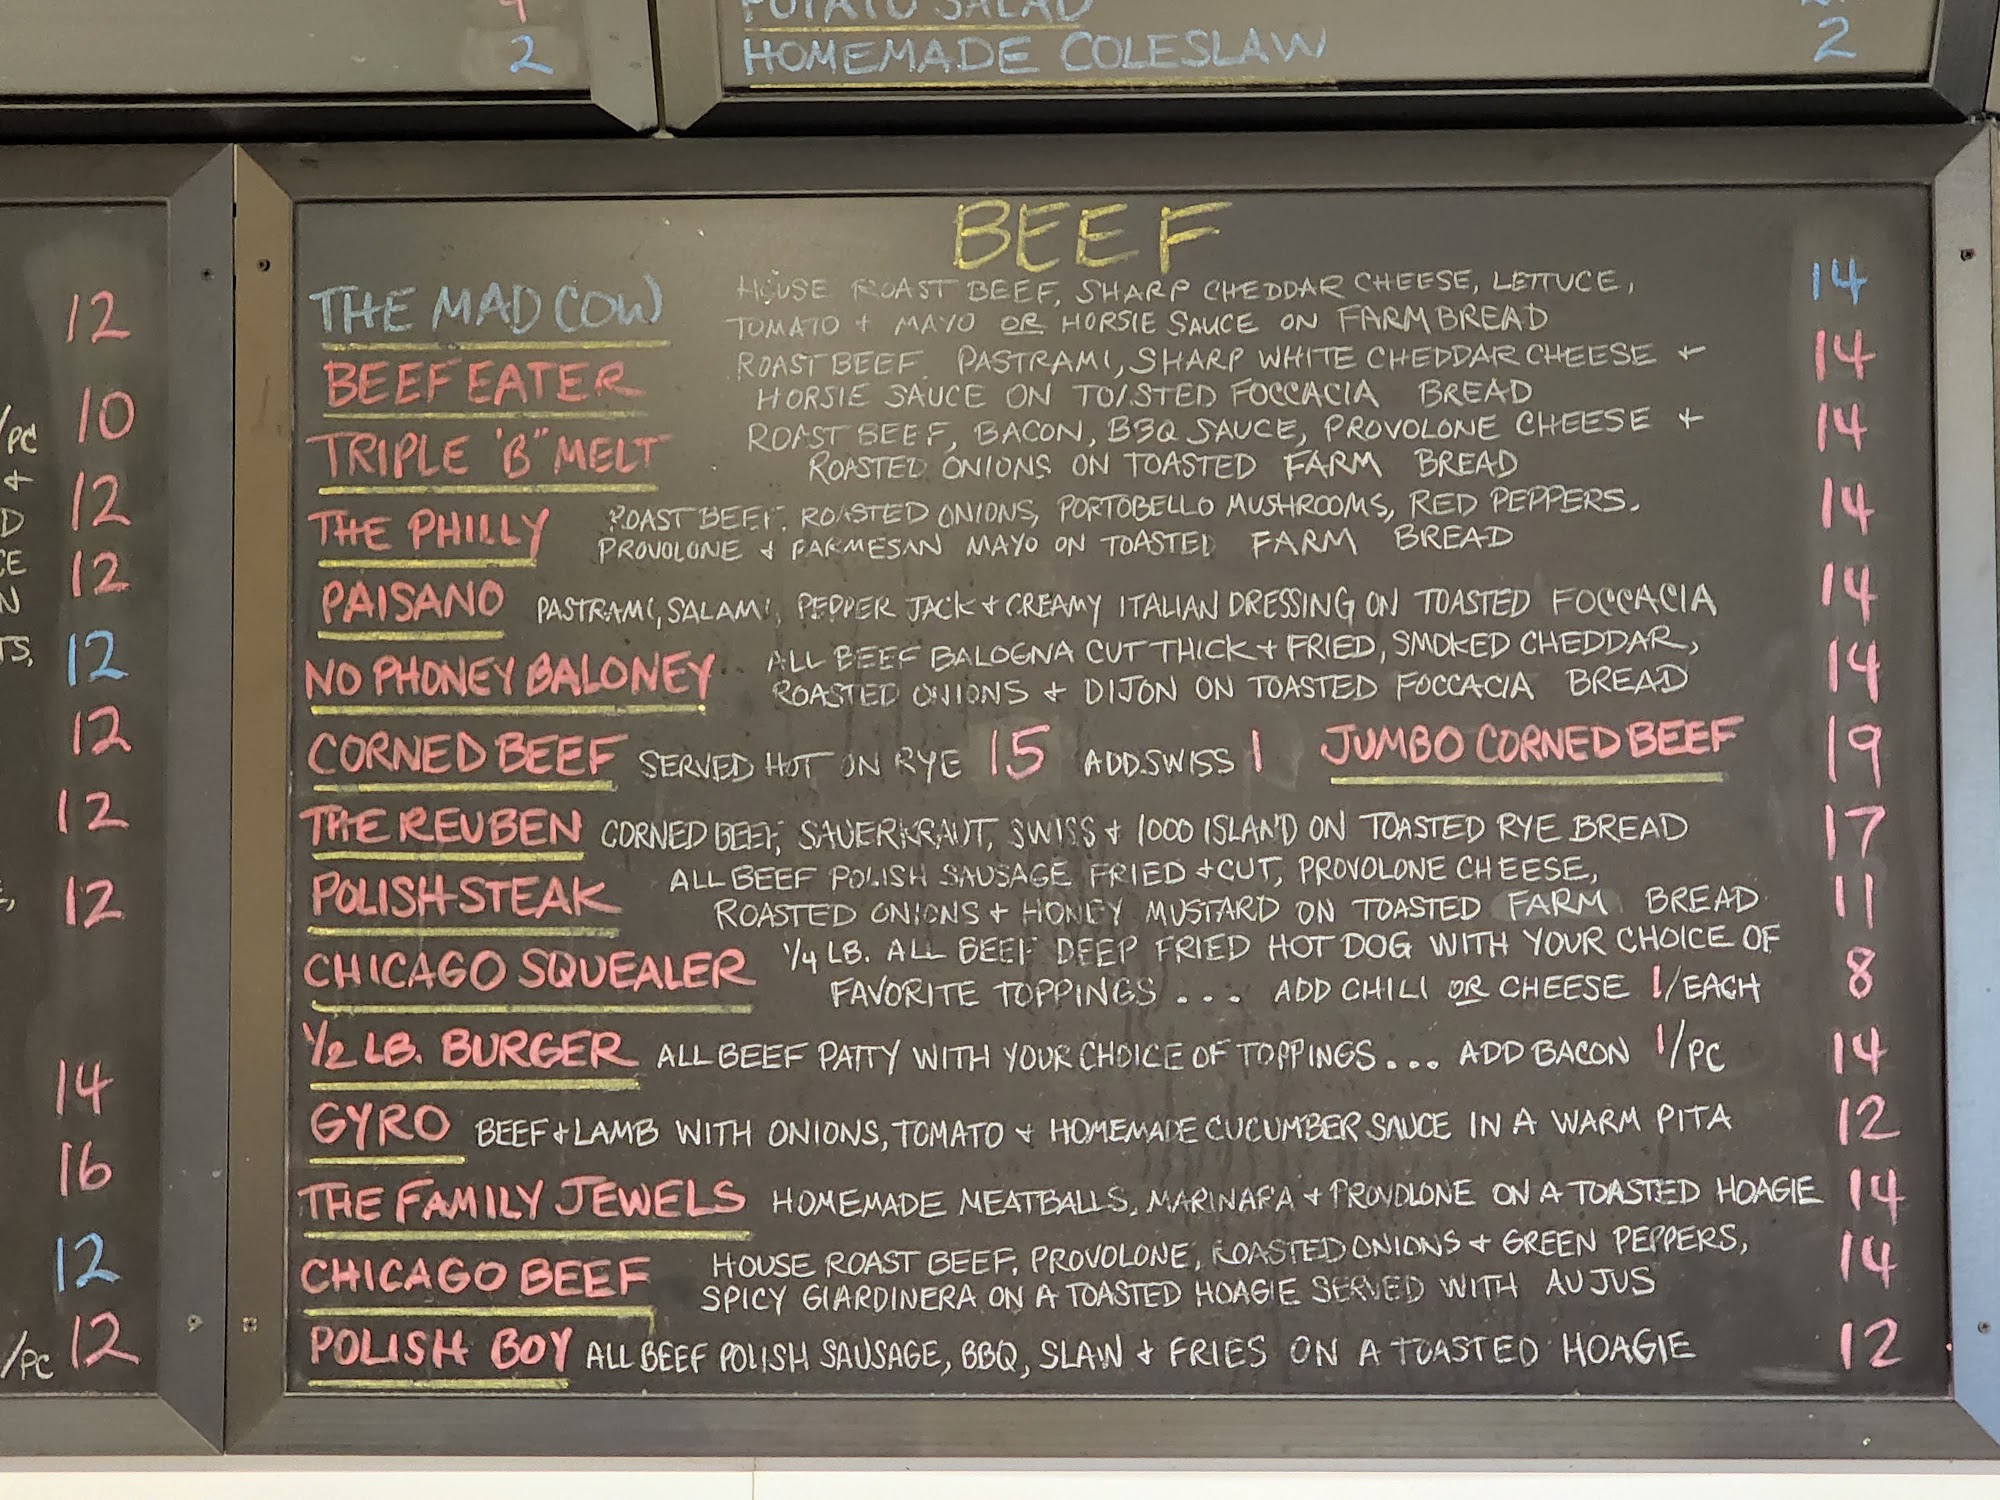 2
HOMEMADE COLESLAW 2
BEEF
THE MAD COW HOUSE ROAST BEEF, SHARP CHEDDAR CHEESE, LETTUCE, 14
TOMATO + MAYO OR HORSIE SAUCE ON FARM BREAD
BEEF EATER ROAST BEEF, PASTRAMI, SHARP WHITE CHEDDAR CHEESE + 14
HORSIE SAUCE ON TOASTED FOCCACIA BREAD
TRIPLE "B" MELT ROAST BEEF, BACON, BBQ SAUCE, PROVOLONE CHEESE + 14
ROASTED ONIONS ON TOASTED FARM BREAD
THE PHILLY ROAST BEEF, ROASTED ONIONS, PORTOBELLO MUSHROOMS, RED PEPPERS, 14
PROVOLONE + PARMESAN MAYO ON TOASTED FARM BREAD
PAISANO PASTRAMI, SALAMI, PEPPER JACK + CREAMY ITALIAN DRESSING ON TOASTED FOCCACIA 14
NO PHONEY BALONEY ALL BEEF BALOGNA CUT THICK + FRIED, SMOKED CHEDDAR, 14
ROASTED ONIONS + DIJON ON TOASTED FOCCACIA BREAD
CORNED BEEF SERVED HOT ON RYE 15 ADD SWISS 1 JUMBO CORNED BEEF 19
THE REUBEN CORNED BEEF, SAUERKRAUT, SWISS + 1000 ISLAND ON TOASTED RYE BREAD 17
POLISH STEAK ALL BEEF POLISH SAUSAGE FRIED + CUT, PROVOLONE CHEESE, 11
ROASTED ONIONS + HONEY MUSTARD ON TOASTED FARM BREAD
CHICAGO SQUEALER 1/4 LB. ALL BEEF DEEP FRIED HOT DOG WITH YOUR CHOICE OF 8
FAVORITE TOPPINGS ... ADD CHILI OR CHEESE 1/EACH
1/2 LB. BURGER ALL BEEF PATTY WITH YOUR CHOICE OF TOPPINGS ... ADD BACON 1/PC 14
GYRO BEEF + LAMB WITH ONIONS, TOMATO + HOMEMADE CUCUMBER SAUCE IN A WARM PITA 12
THE FAMILY JEWELS HOMEMADE MEATBALLS, MARINARA + PROVOLONE ON A TOASTED HOAGIE 14
CHICAGO BEEF HOUSE ROAST BEEF, PROVOLONE, ROASTED ONIONS + GREEN PEPPERS, 14
SPICY GIARDINERA ON A TOASTED HOAGIE SERVED WITH AU JUS
POLISH BOY ALL BEEF POLISH SAUSAGE, BBQ, SLAW + FRIES ON A TOASTED HOAGIE 12
12
/PC 10
+ 12
12
12
12
12
12
14
16
12
/PC 12